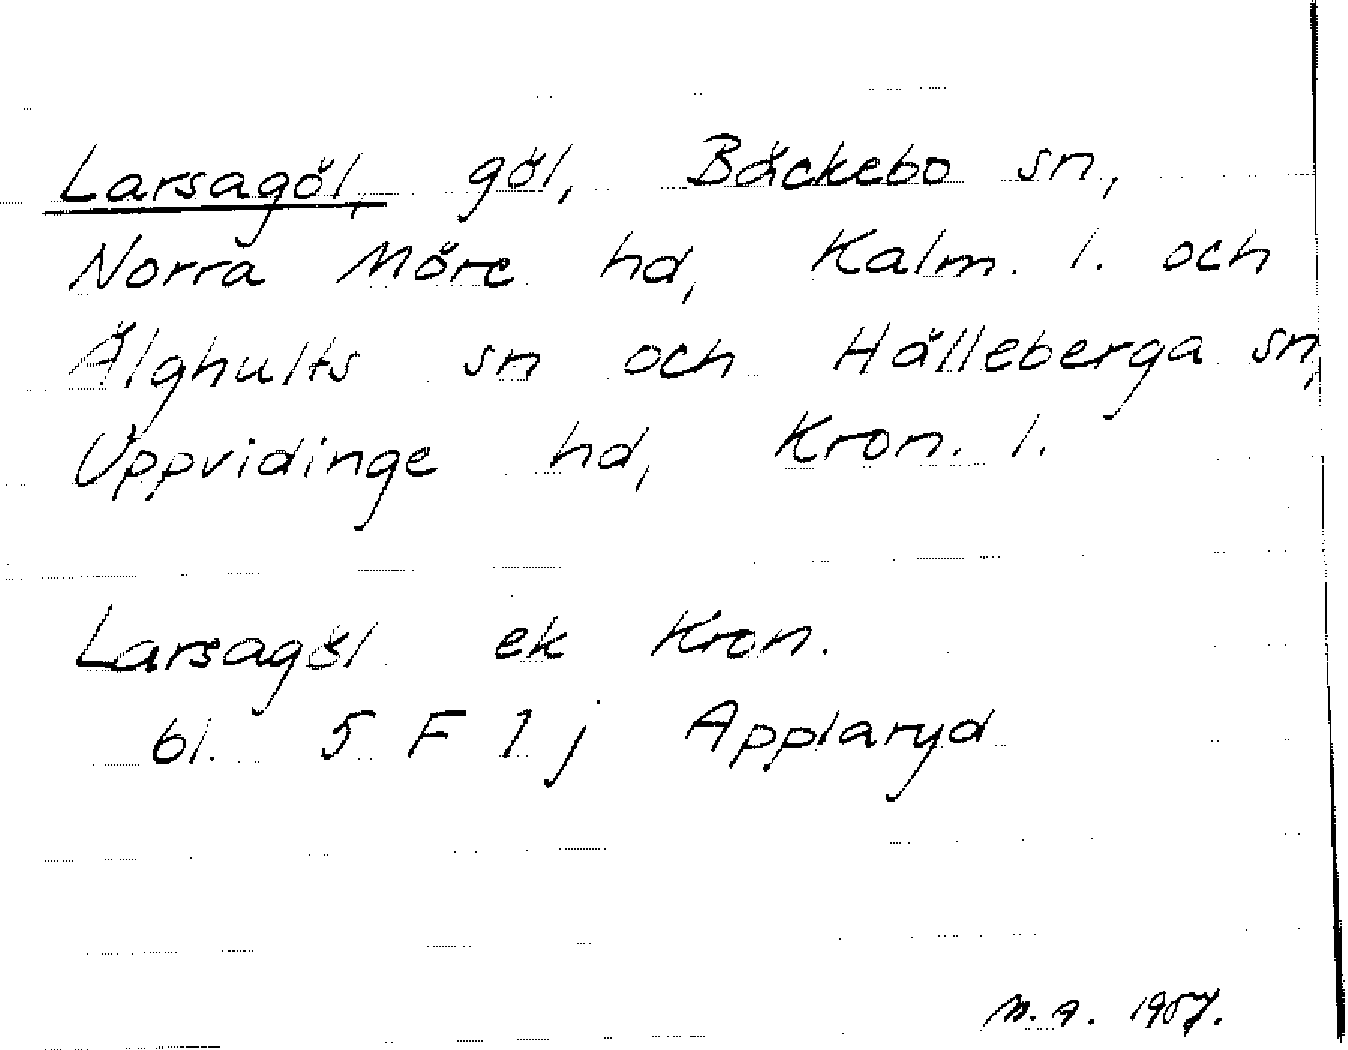 Larsagöl, göl, Bäckebo sn,
Norra Möre hd, Kalm. l. och
Älghults sn och Hälleberga sn,
Uppvidinge hd, Kron. l.
Larsagöl ek Kron.
bl. 5 F 1 j Applaryd
M. A. 1957.